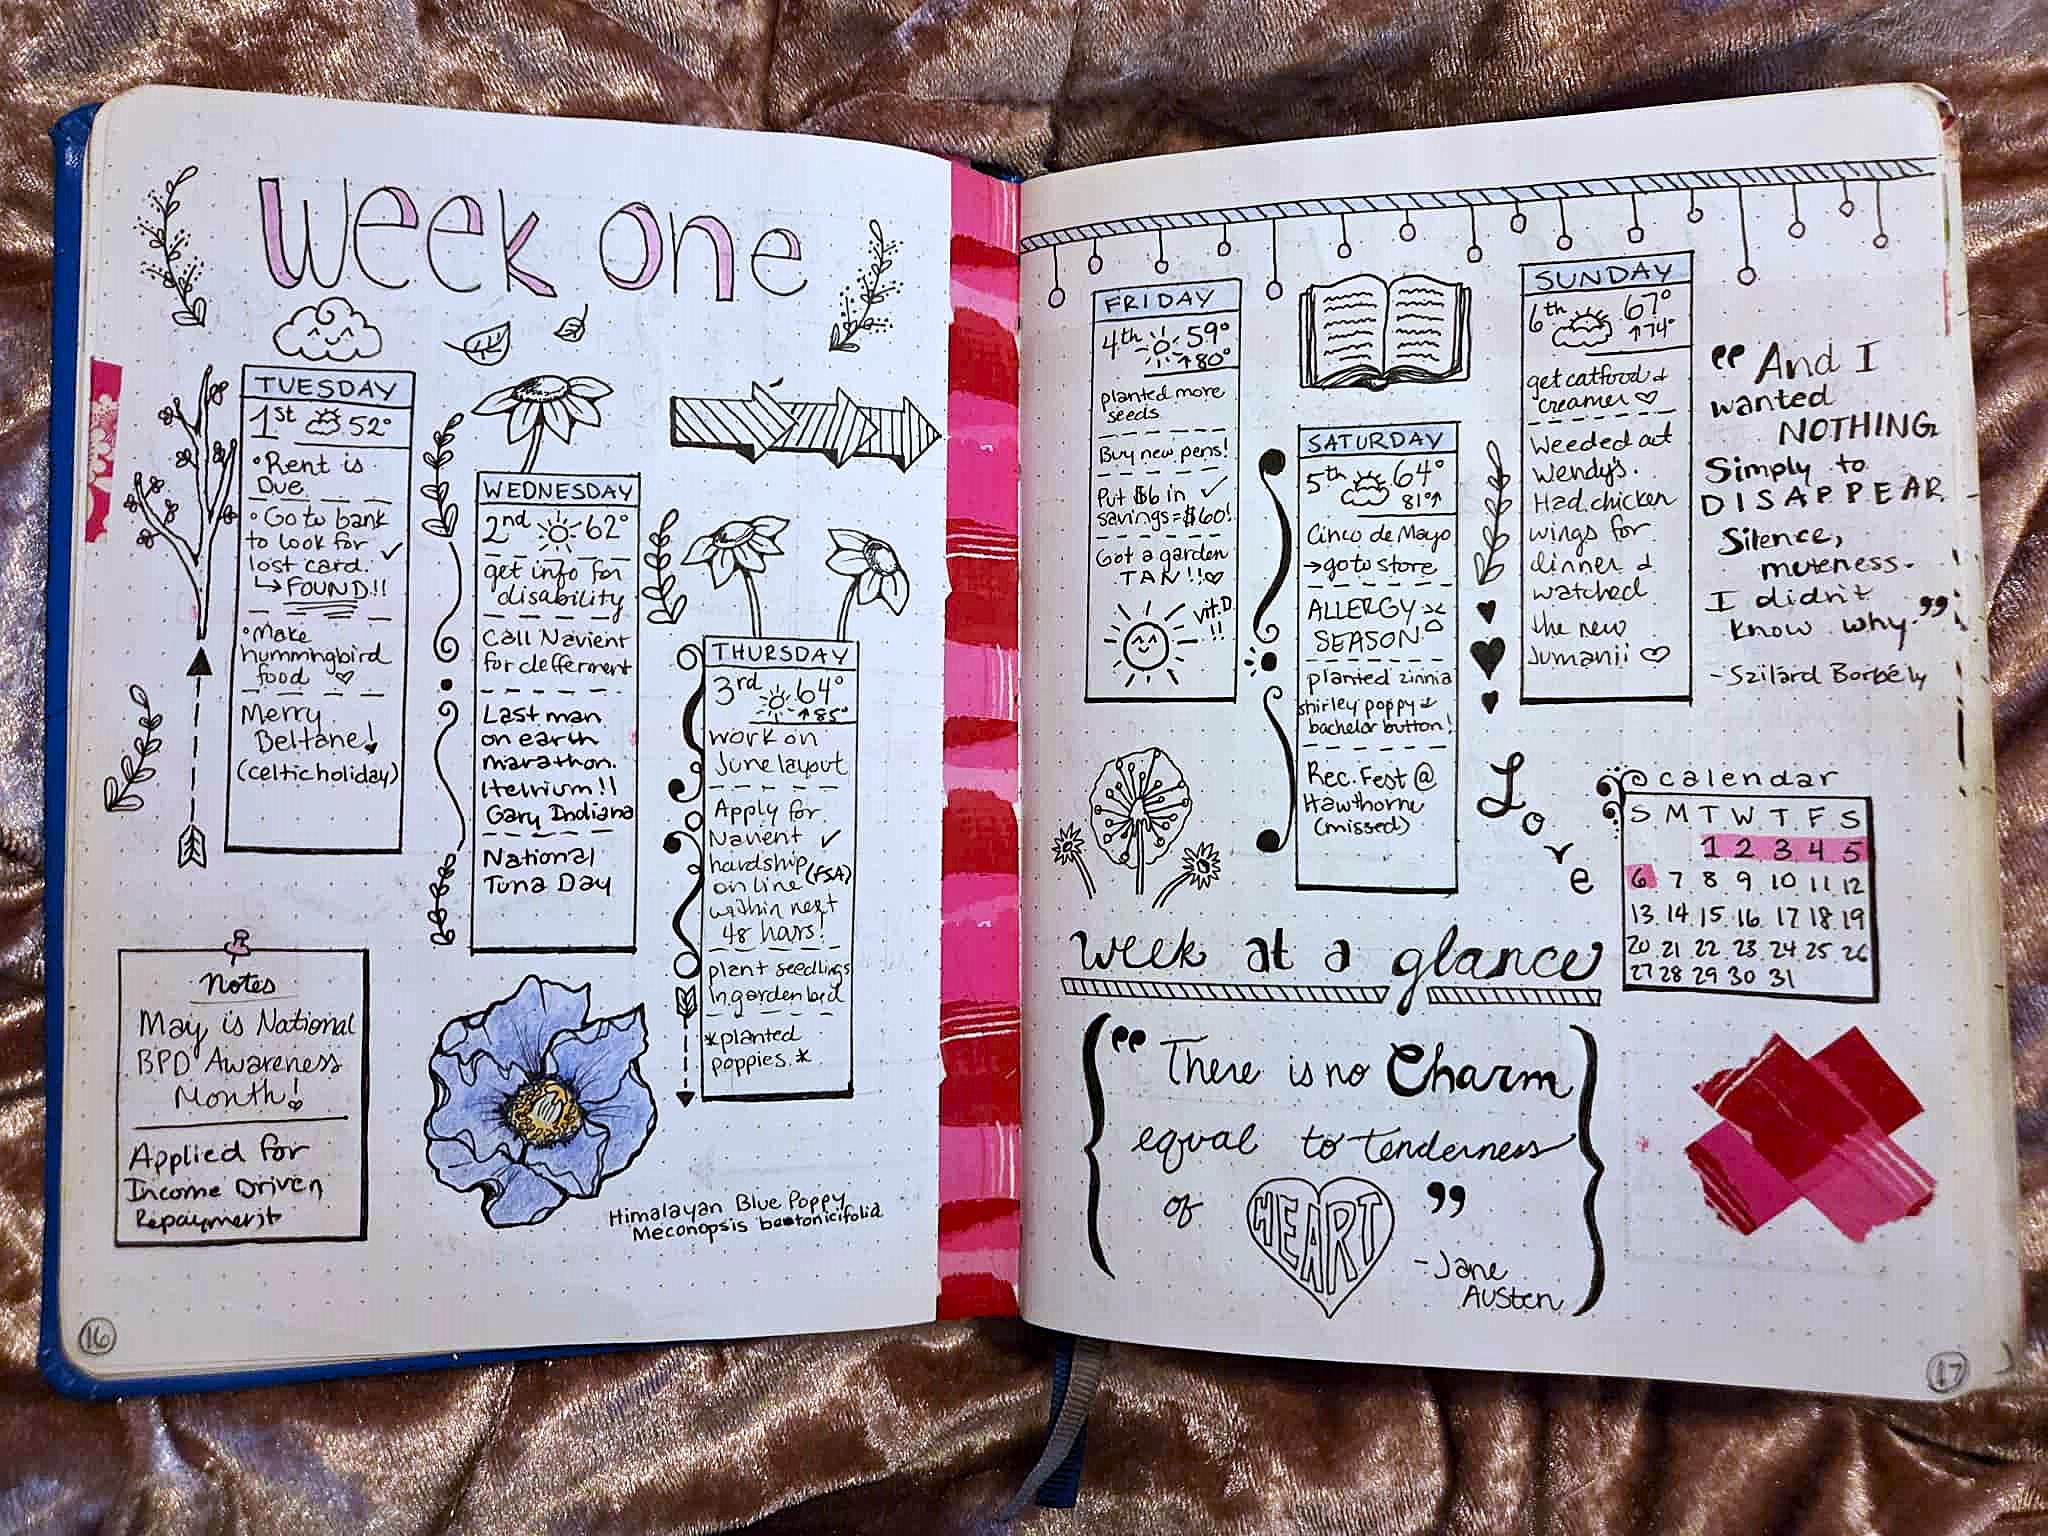 Week one
TUESDAY
1st 52°
• Rent is
Due
• Go to bank
to look for
lost card. ✓
↳ FOUND!!
• Make
hummingbird
food ♡
Merry
Beltane!
(celtic holiday)
WEDNESDAY
2nd 62°
get info for
disability
Call Navient
for defferment
Last man
on earth
marathon.
Gary Indiana
National
Tuna Day
THURSDAY
3rd 64°
↑85°
work on
June layout
Apply for
Navient ✓
hardship
online (FSA)
within next
48 hours!
plant seedlings
in garden bed
*planted
poppies.*
Notes
May is National
BPD Awareness
Month!
Applied for
Income Driven
Repayment
Himalayan Blue Poppy
Meconopsis betonicifolia
16
FRIDAY
4th 59°
↑80°
planted more
seeds
Buy new pens!
Put $6 in ✓
savings = $60!
Got a garden
TAN!!♡
vit. D
!!
SATURDAY
5th 64°
81°↑
Cinco de Mayo
→ go to store
ALLERGY
SEASON
planted zinnia
shirley poppy &
bachelor button!
Rec. Fest @
Hawthorne
(missed)
SUNDAY
6th 67°
↑74°
get catfood &
creamer ♡
Weeded out
Wendy's.
Had chicken
wings for
dinner &
watched
the new
Jumanii ♡
"And I
wanted
NOTHING
Simply to
DISAPPEAR
Silence,
muteness.
I didn't
know why."
- Szilárd Borbély
Love
calendar
S M T W T F S
1 2 3 4 5
6 7 8 9 10 11 12
13 14 15 16 17 18 19
20 21 22 23 24 25 26
27 28 29 30 31
Week at a glance
"There is no Charm
equal to tenderness
of HEART"
- Jane
Austen
17